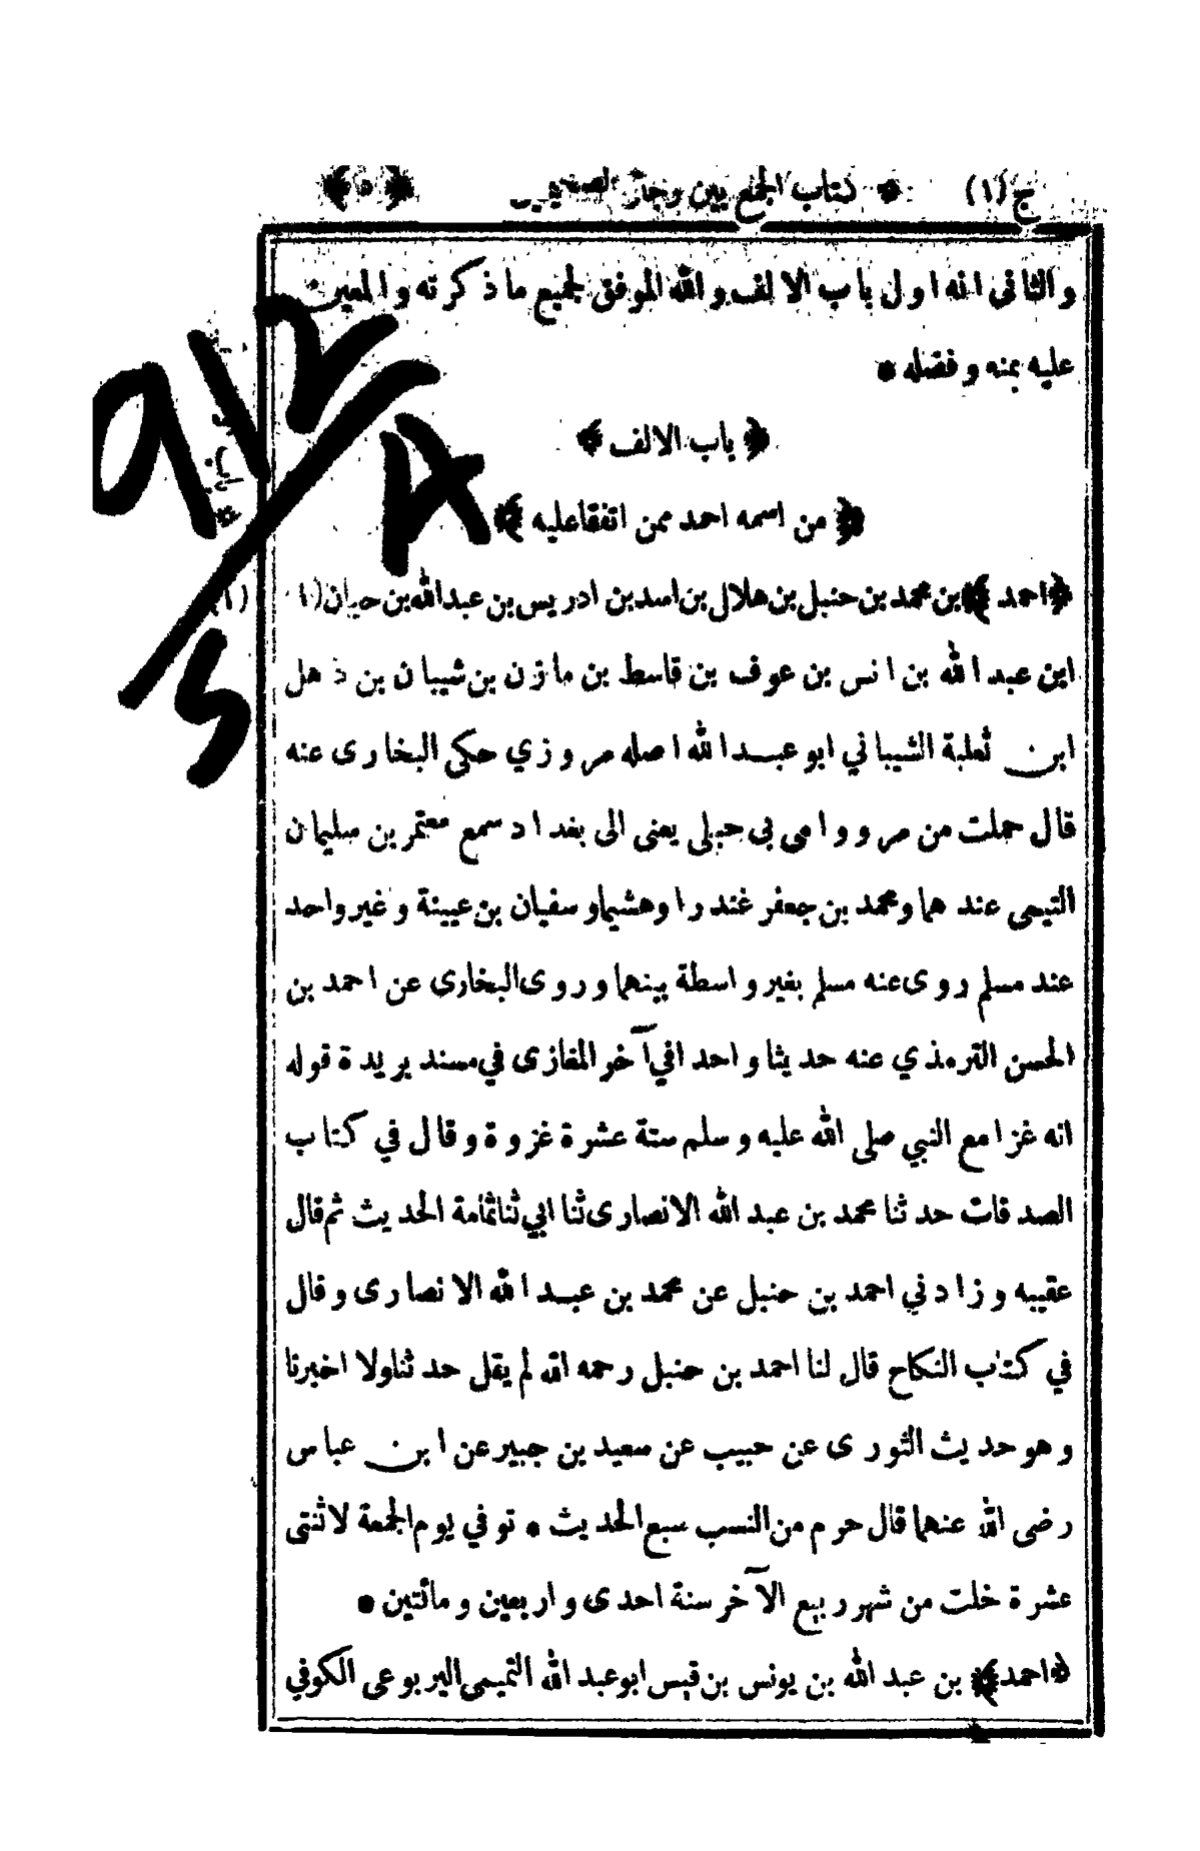 ج (١) * كتاب الجمع بين رجال الصحيحين ﴿٥﴾
والثانى انه اول باب الالف والله الموفق لجميع ما ذكرته والمعين
عليه بمنه وفضله *
﴿ باب الالف ﴾
﴿ من اسمه احمد ممن اتفقا عليه ﴾
﴿احمد﴾ بن محمد بن حنبل بن هلال بن اسد بن ادريس بن عبدالله بن حيان (١)
ابن عبد الله بن انس بن عوف بن قاسط بن مازن بن شيبان بن ذهل
ابن ثعلبة الشيباني ابو عبد الله اصله مروزي حكى البخارى عنه
قال حملت من مرو وامى بى حبلى يعنى الى بغداد سمع معتمر بن سليمان
التيمى عندهما ومحمد بن جعفر غندرا وهشيما وسفيان بن عيينة وغير واحد
عند مسلم روى عنه مسلم بغير واسطة بينهما وروى البخارى عن احمد بن
الحسن الترمذي عنه حديثا واحدا في آخر المغازى في مسند بريدة قوله
انه غزا مع النبي صلى الله عليه وسلم ستة عشرة غزوة وقال في كتاب
الصدقات حدثنا محمد بن عبد الله الانصارى ثنا ابي ثنا ثمامة الحديث ثم قال
عقيبه وزادني احمد بن حنبل عن محمد بن عبد الله الانصارى وقال
في كتاب النكاح قال لنا احمد بن حنبل رحمه الله لم يقل حدثنا ولا اخبرنا
وهو حديث الثورى عن حبيب عن سعيد بن جبير عن ابن عباس
رضى الله عنهما قال حرم من النسب سبع الحديث * توفي يوم الجمعة لاثنتى
عشرة خلت من شهر ربيع الآخر سنة احدى واربعين ومائتين *
﴿احمد﴾ بن عبد الله بن يونس بن قيس ابو عبد الله التميمى اليربوعى الكوفي
(١)
912/3